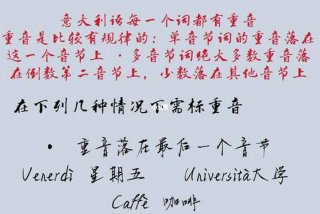 意大利语每一个词都有重音
重音是比较有规律的：单音节词的重音落在
这一个音节上．多音节词绝大多数重音落
在例数第二音节上，少数落在其他音节上
在下列几种情况下需标重音
• 重音落在最后一个音节
Venerdì 星期五 Università大学
Caffè 咖啡